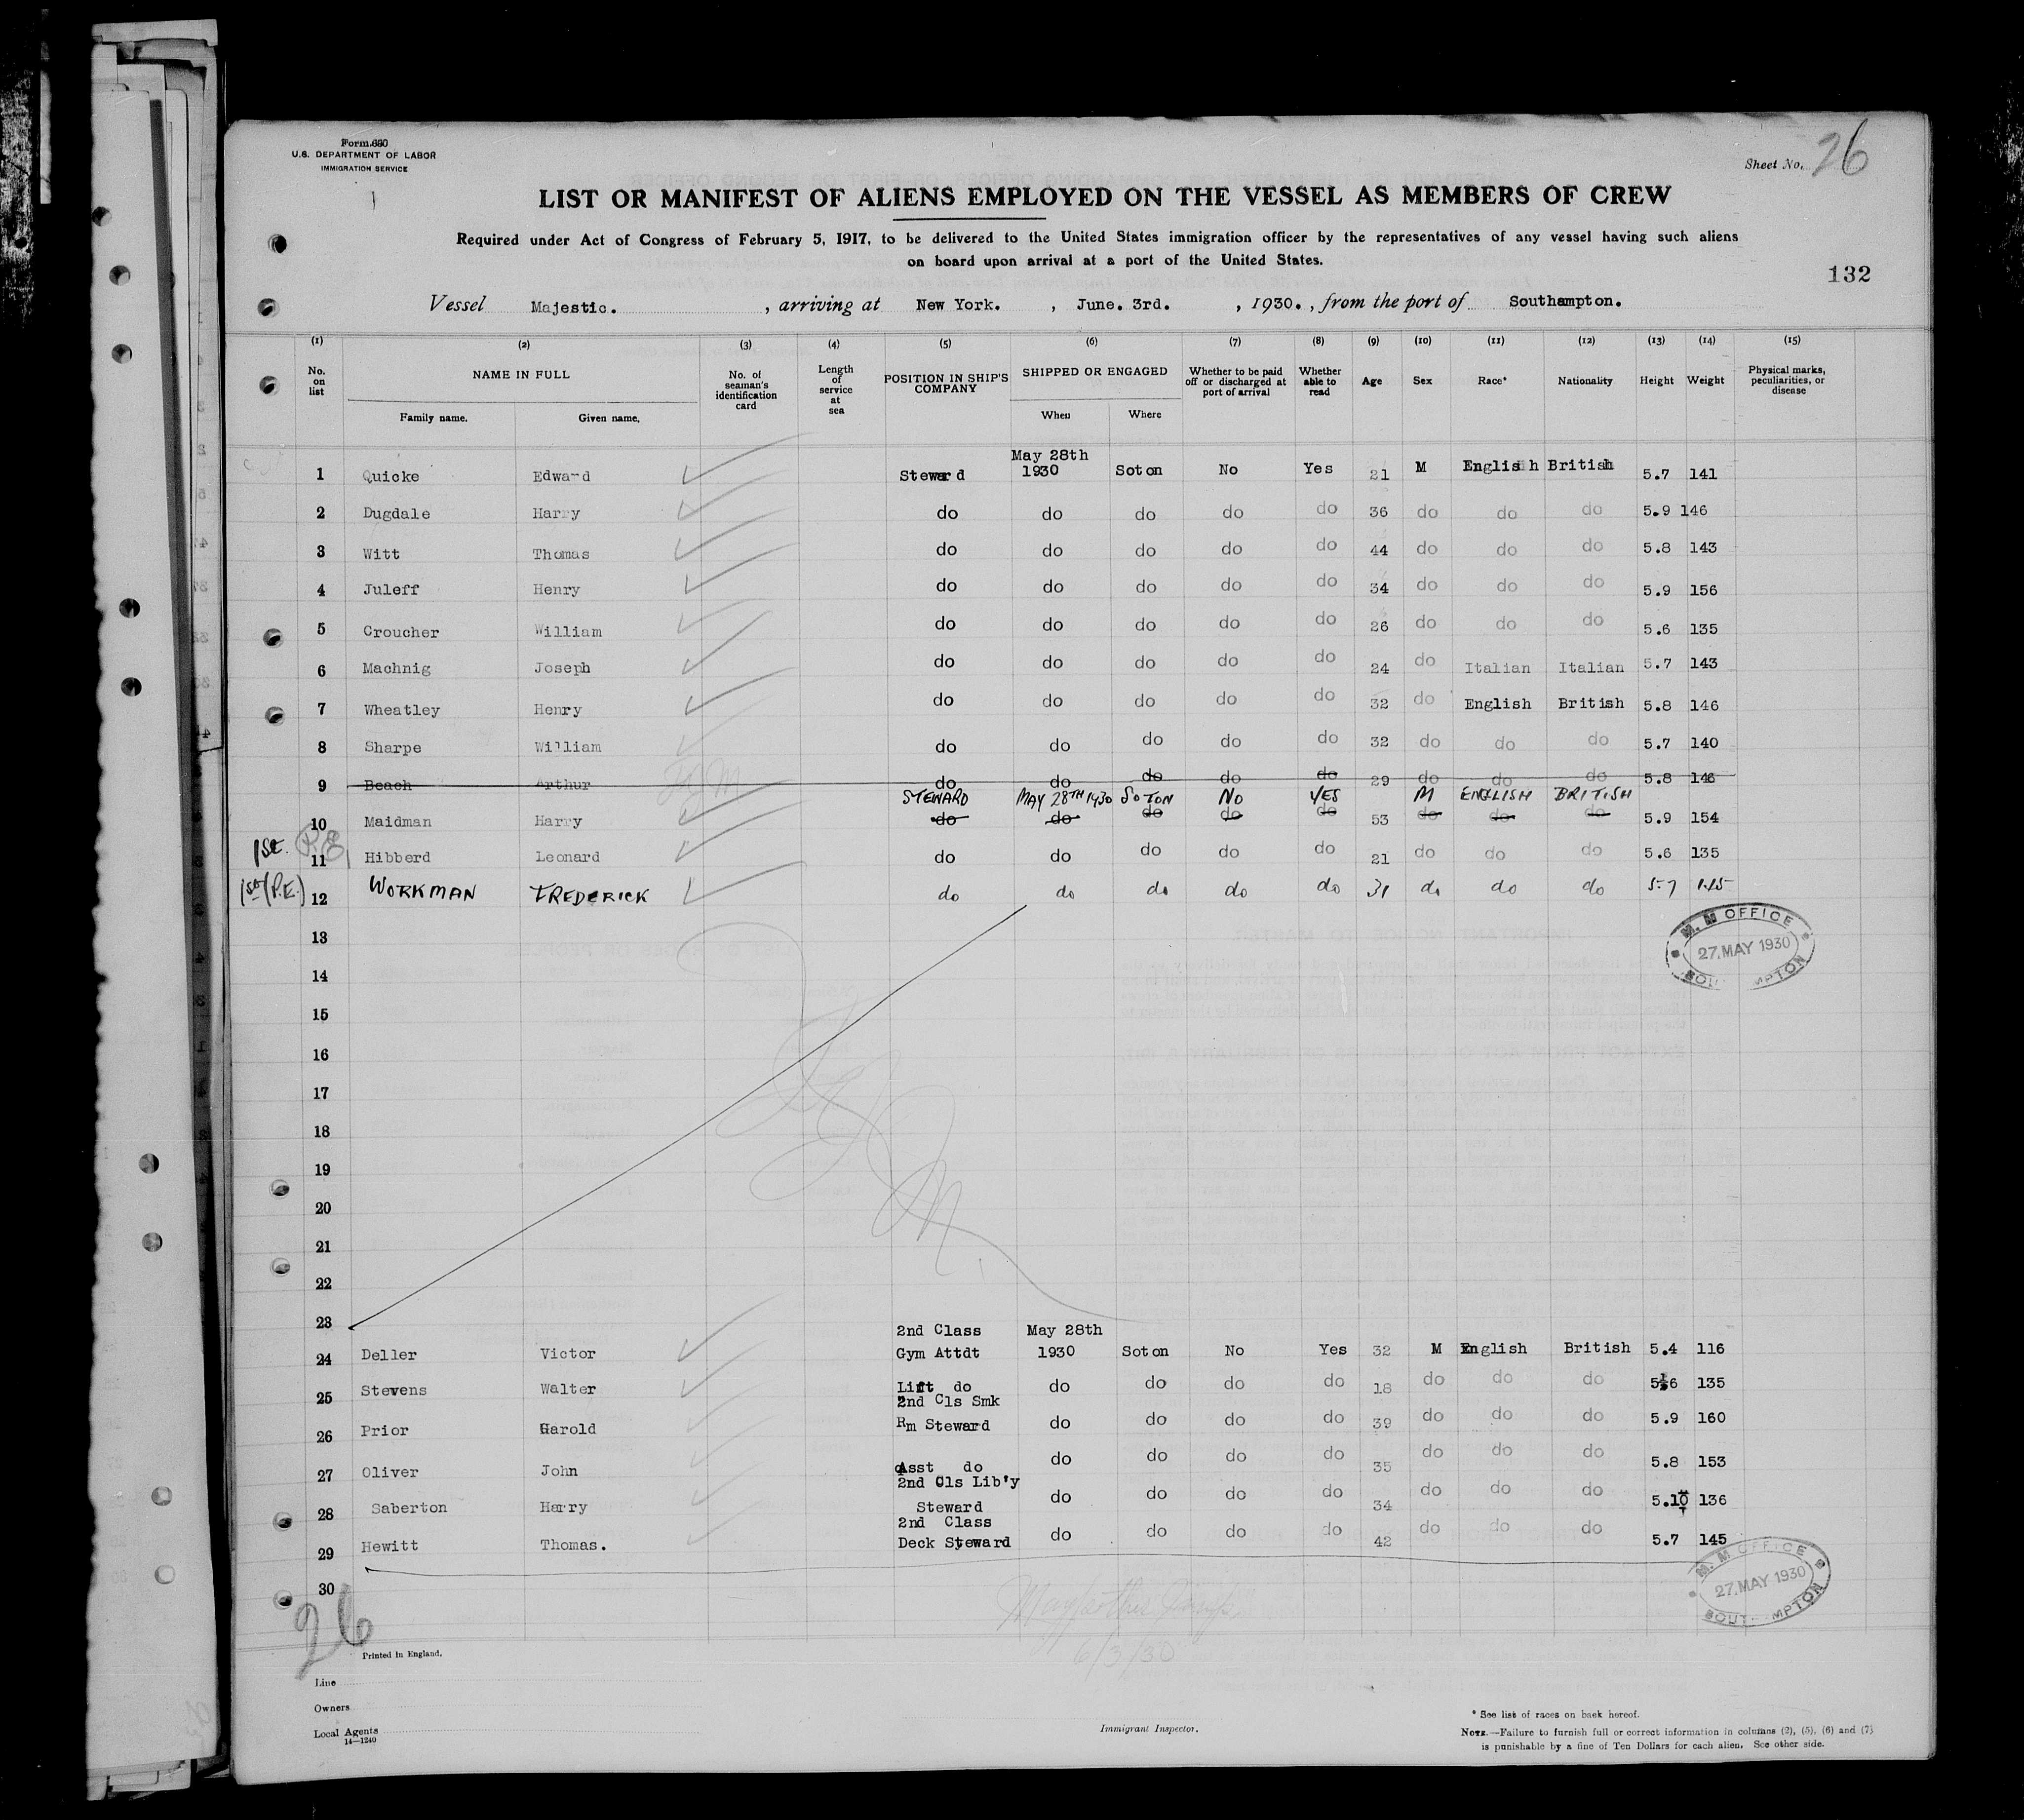 Form 680
U.S. DEPARTMENT OF LABOR
IMMIGRATION SERVICE
Sheet No. 26
LIST OR MANIFEST OF ALIENS EMPLOYED ON THE VESSEL AS MEMBERS OF CREW
Required under Act of Congress of February 5, 1917, to be delivered to the United States immigration officer by the representatives of any vessel having such aliens
on board upon arrival at a port of the United States.
132
Vessel Majestic. , arriving at New York. , June. 3rd. , 1930. , from the port of Southampton.
(1) (2) (3) (4) (5) (6) (7) (8) (9) (10) (11) (12) (13) (14) (15)
No. on list NAME IN FULL No. of seaman's identification card Length of service at sea POSITION IN SHIP'S COMPANY SHIPPED OR ENGAGED Whether to be paid off or discharged at port of arrival Whether able to read Age Sex Race* Nationality Height Weight Physical marks, peculiarities, or disease
Family name. Given name. When Where
May 28th
1 Quicke Edward Steward 1930 Soton No Yes 21 M English British 5.7 141
2 Dugdale Harry do do do do do 36 do do do 5.9 146
3 Witt Thomas do do do do do 44 do do do 5.8 143
4 Juleff Henry do do do do do 34 do do do 5.9 156
5 Croucher William do do do do do 26 do do do 5.6 135
6 Machnig Joseph do do do do do 24 do Italian Italian 5.7 143
7 Wheatley Henry do do do do do 32 do English British 5.8 146
8 Sharpe William do do do do do 32 do do do 5.7 140
9 Beach Arthur do do do do do 29 do do do 5.8 146
STEWARD MAY 28TH 1930 SOTON NO YES M ENGLISH BRITISH
10 Maidman Harry do do do do do 53 do do do 5.9 154
1st. P.E. 11 Hibberd Leonard do do do do do 21 do do do 5.6 135
1st (P.E.) 12 WORKMAN FREDERICK do do do do do 31 do do do 5-7
M.M OFFICE
27.MAY 1930
13
14
15
16
17
18
19
20
21
22
23
2nd Class May 28th
24 Deller Victor Gym Attdt 1930 Soton No Yes 32 M English British 5.4 116
25 Stevens Walter Lift do do do do do 18 do do do 5.6 135
2nd Cls Smk
26 Prior Harold Rm Steward do do do do 39 do do do 5.9 160
27 Oliver John Asst do do do do do 35 do do do 5.8 153
2nd Cls Lib'y
28 Saberton Harry Steward do do do do 34 do do do 5.10 136
2nd Class
29 Hewitt Thomas. Deck Steward do do do do 42 do do do 5.7 145
30
M.M OFFICE
27.MAY 1930
26
6/3/30
Printed in England.
Line
Owners
Local Agents
14—1240
Immigrant Inspector.
* See list of races on back hereof.
NOTE.—Failure to furnish full or correct information in columns (2), (5), (6) and (7)
is punishable by a fine of Ten Dollars for each alien. See other side.